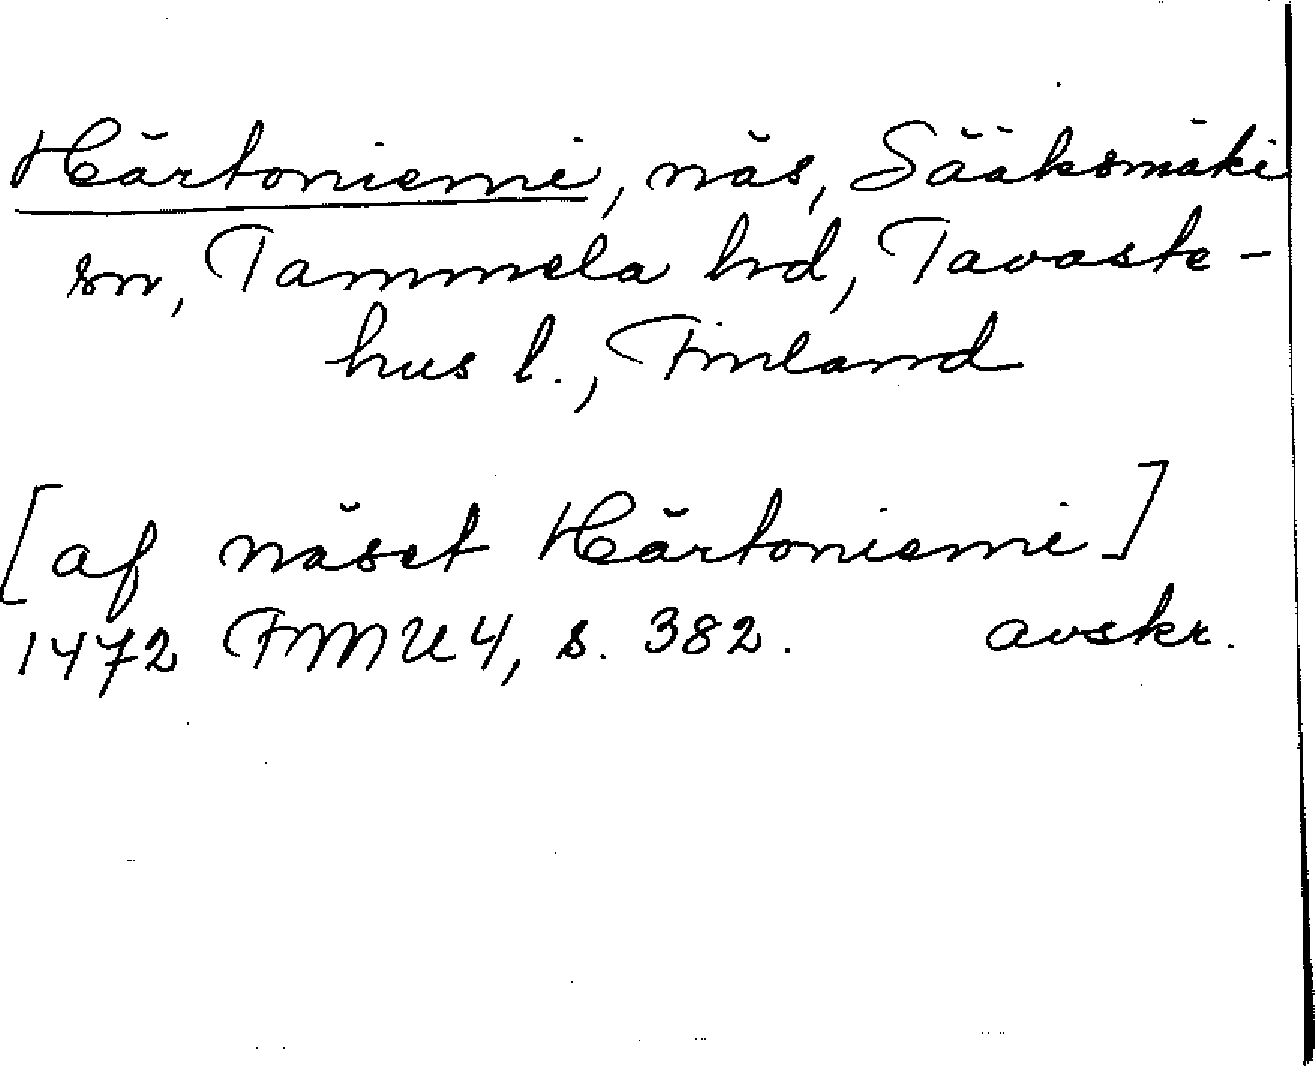 Härtoniemi, näs, Sääksmäki
sn, Tammela hd, Tavaste-
hus l., Finland
[af näset Härtoniemi]
1472 FMU 4, s. 382. avskr.